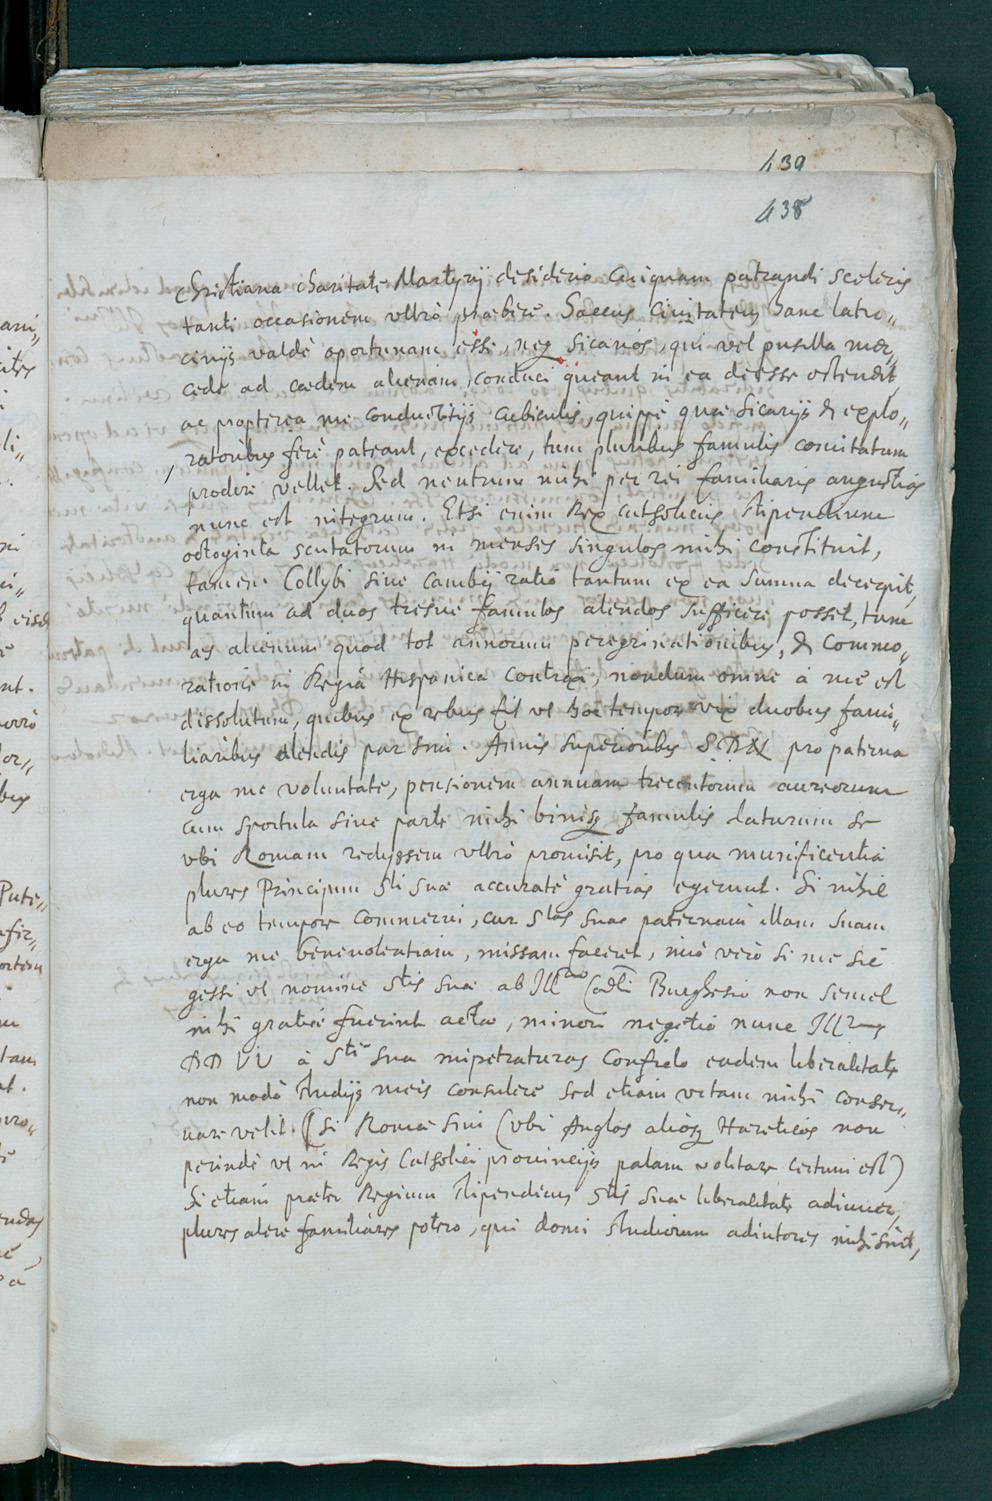 439
438
Christiana charitate Martyrij desiderio cuiquam patrandi sceleris
tanti occasionem vltrò præbere. Saccus Ciuitatem hanc latro„
cinijs valdè oportunam esse, neq sicarios, qui vel pusilla mer„
cede ad cædem alienam conduci queant in ea deesse ostendit,
ac propterea me conductitijs cubiculis, quippè quæ sicarijs & explo„
ratoribus ferè pateant, excedere, tum pluribus famulis comitatum
prodire vellet. Sed neutrum mihi per rei familiaris angustias
nunc est integrum. Etsi enim Rex Catholicus stipendium
octoginta scutatorum in menses singulos mihi constituit,
tamen Collybi siue Cambij ratio tantum ex ea summa decerpit,
quantum ad duos tresue famulos alendos sufficere posset, tum
æs alienum quod tot annorum peregrinationibus, & commo„
ratione in Regia Hispanica contraxi, nondum omne à me est
dissolutum, quibus ex rebus fit vt hoc tempore vix duobus fami„
liaribus alendis par sim. Annis superioribus S.D.N. pro paterna
erga me voluntate, pensionem annuam trecentorum aureorum
cum sportula siue parte mihi binisq famulis daturum se
vbi Romam redijssem vltrò promisit, pro qua munificentia
plures Principum Sti suæ accuratè gratias egerunt. Si nihil
ab eo tempore commerui, cur Stas suas paternam illam suam
erga me beneuolentiam, missam faceret, imò verò si me sic
gessi vt nomine Stis suæ ab Illmo Cardli Burghesio non semel
mihi gratiæ fuerint actæ, minori negotio nunc Illmas
DD VV à Ste sua impetraturas confido eadem liberalitate
non modò studijs meis consulere sed etiam vitam mihi conser„
uare velit. Si Romæ sim (vbi Anglos aliosq Hæreticos non
perindè vt in Regis Catholici prouincijs palam volitare certum est)
Si etiam præter Regium stipendium Stis suæ liberalitate adiuuer,
plures alere familiares potero, qui domi studiorum adiutores mihi sint,